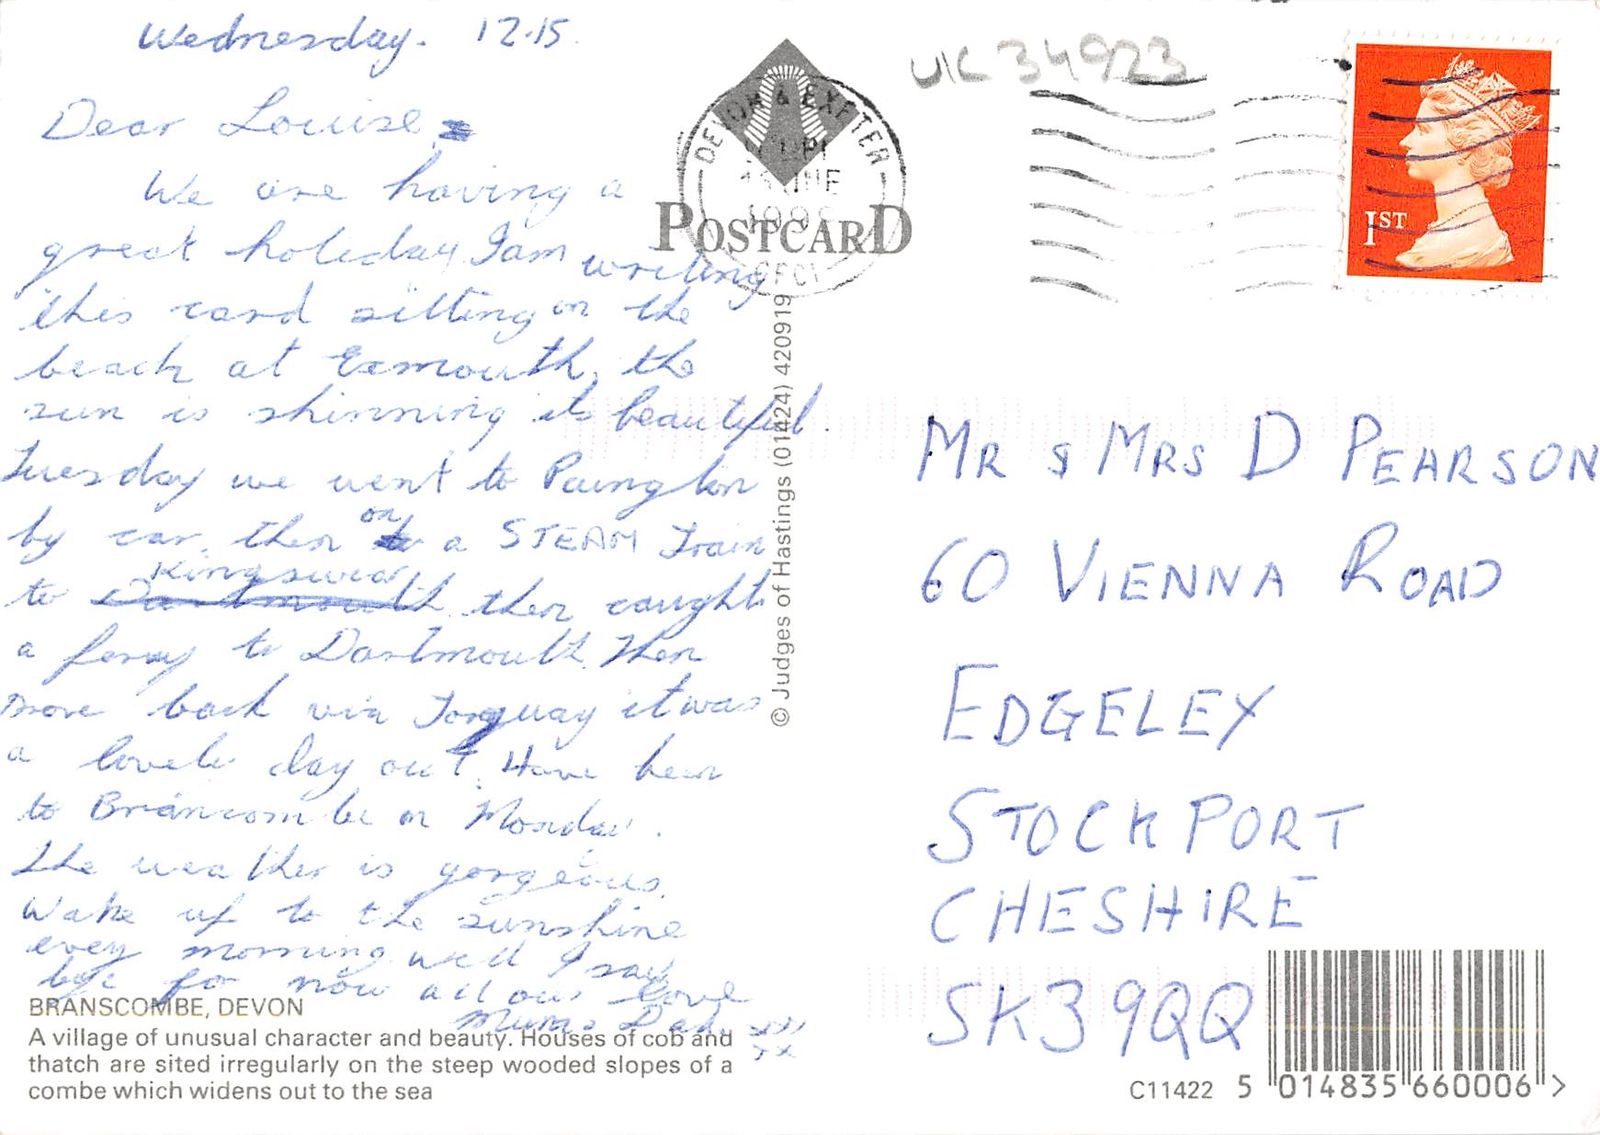 Wednesday. 12.15.
Dear Louise,
We are having a
great holiday, I am writing
this card sitting on the
beach at Exmouth, the
sun is shinning its beautiful.
Tuesday we went to Paington
by car, then on a STEAM Train
to Kingswear then caught
a ferry to Dartmouth. Then
back via Torquay it was
a lovely day out. Have been
to Branscombe on Monday.
The weather is gorgeous.
Wake up to the sunshine
every morning well I say
bye for now all our love
Mum & Dad. xxx
xx
BRANSCOMBE, DEVON
A village of unusual character and beauty. Houses of cob and
thatch are sited irregularly on the steep wooded slopes of a
combe which widens out to the sea
POSTCARD
DEVON & EXETER
JNE
© Judges of Hastings (01424) 420919
UK 34923
1ST
MR & MRS D PEARSON
60 VIENNA ROAD
EDGELEY
STOCKPORT
CHESHIRE
SK3 9QQ
C11422 5 014835 660006 >